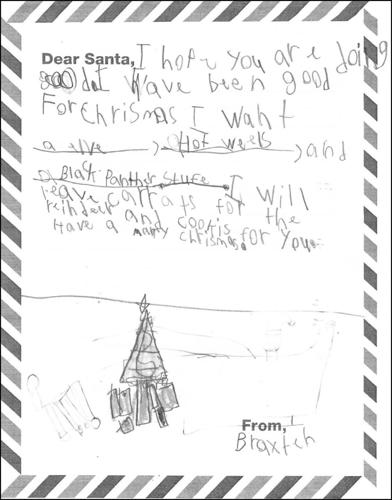 Dear Santa, I hope you are doing
good I have been good
For chrismas I want
a elve, Hot weels, and
a Black Panther stuff. I will
leave carrats for the
reindeer and cookis for you.
Have a marry chrismas
From,
Braxten